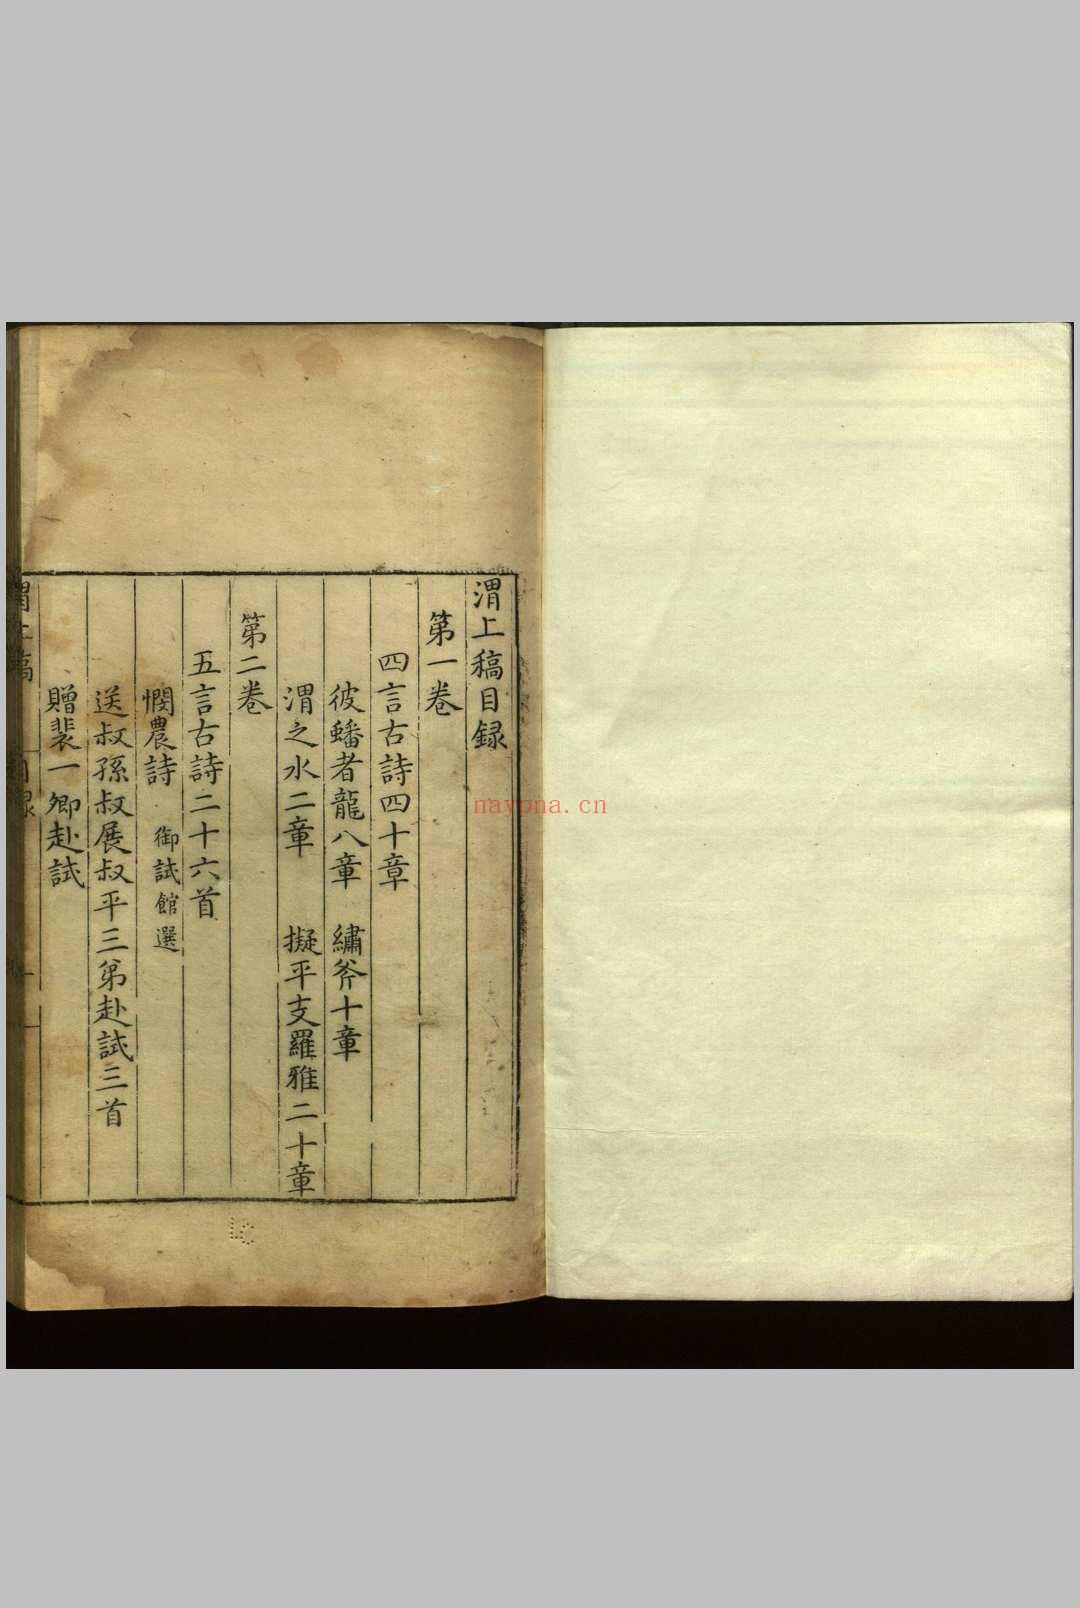 渭上稿目録
第一卷
四言古詩四十章
彼蟠者龍八章 繡斧十章
渭之水二章 擬平支羅雅二十章
第二卷
五言古詩二十六首
憫農詩 御試館選
送叔孫叔展叔平三弟赴試三首
贈裴一卿赴試
渭上稿 目録 一
nayona.cn